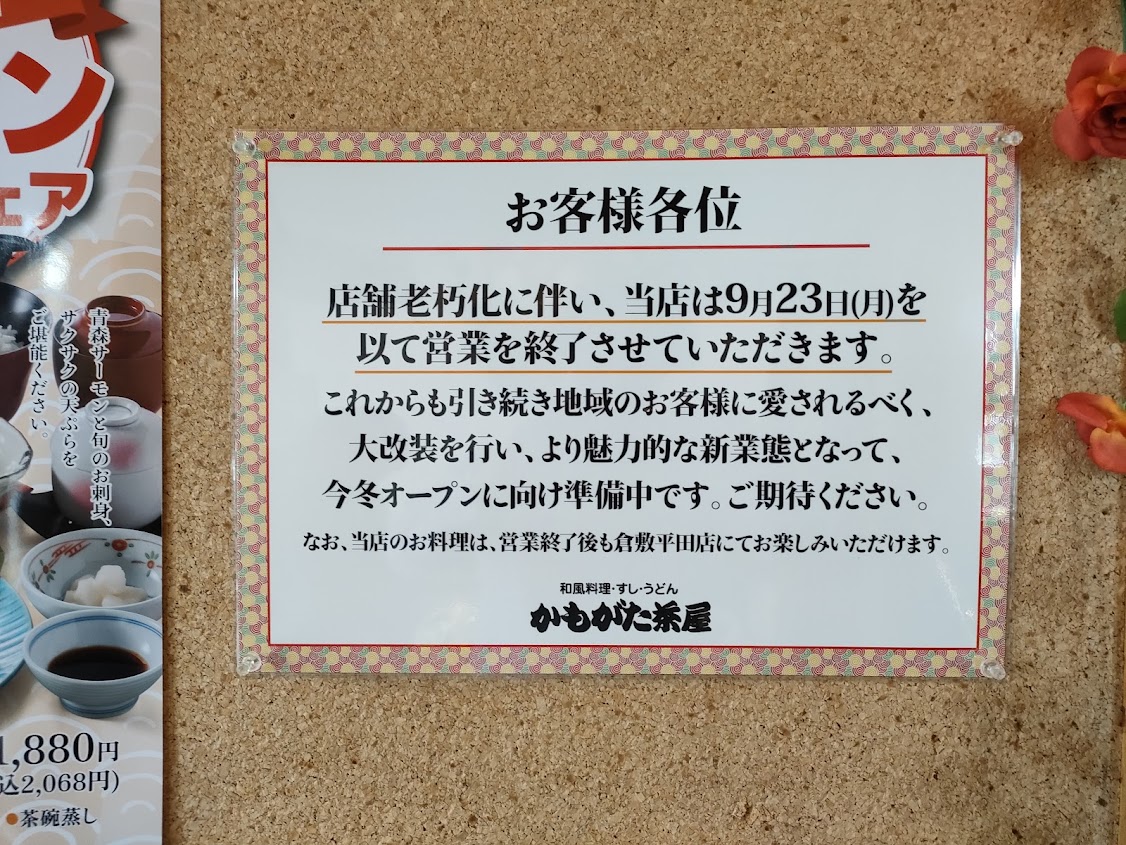 ン
ェア
青森サーモンと旬のお刺身、
サクサクの天ぷらを
ご堪能ください。
1,880円
込2,068円)
●茶碗蒸し
お客様各位
店舗老朽化に伴い、当店は9月23日(月)を
以て営業を終了させていただきます。
これからも引き続き地域のお客様に愛されるべく、
大改装を行い、より魅力的な新業態となって、
今冬オープンに向け準備中です。ご期待ください。
なお、当店のお料理は、営業終了後も倉敷平田店にてお楽しみいただけます。
和風料理・すし・うどん
かもがた茶屋